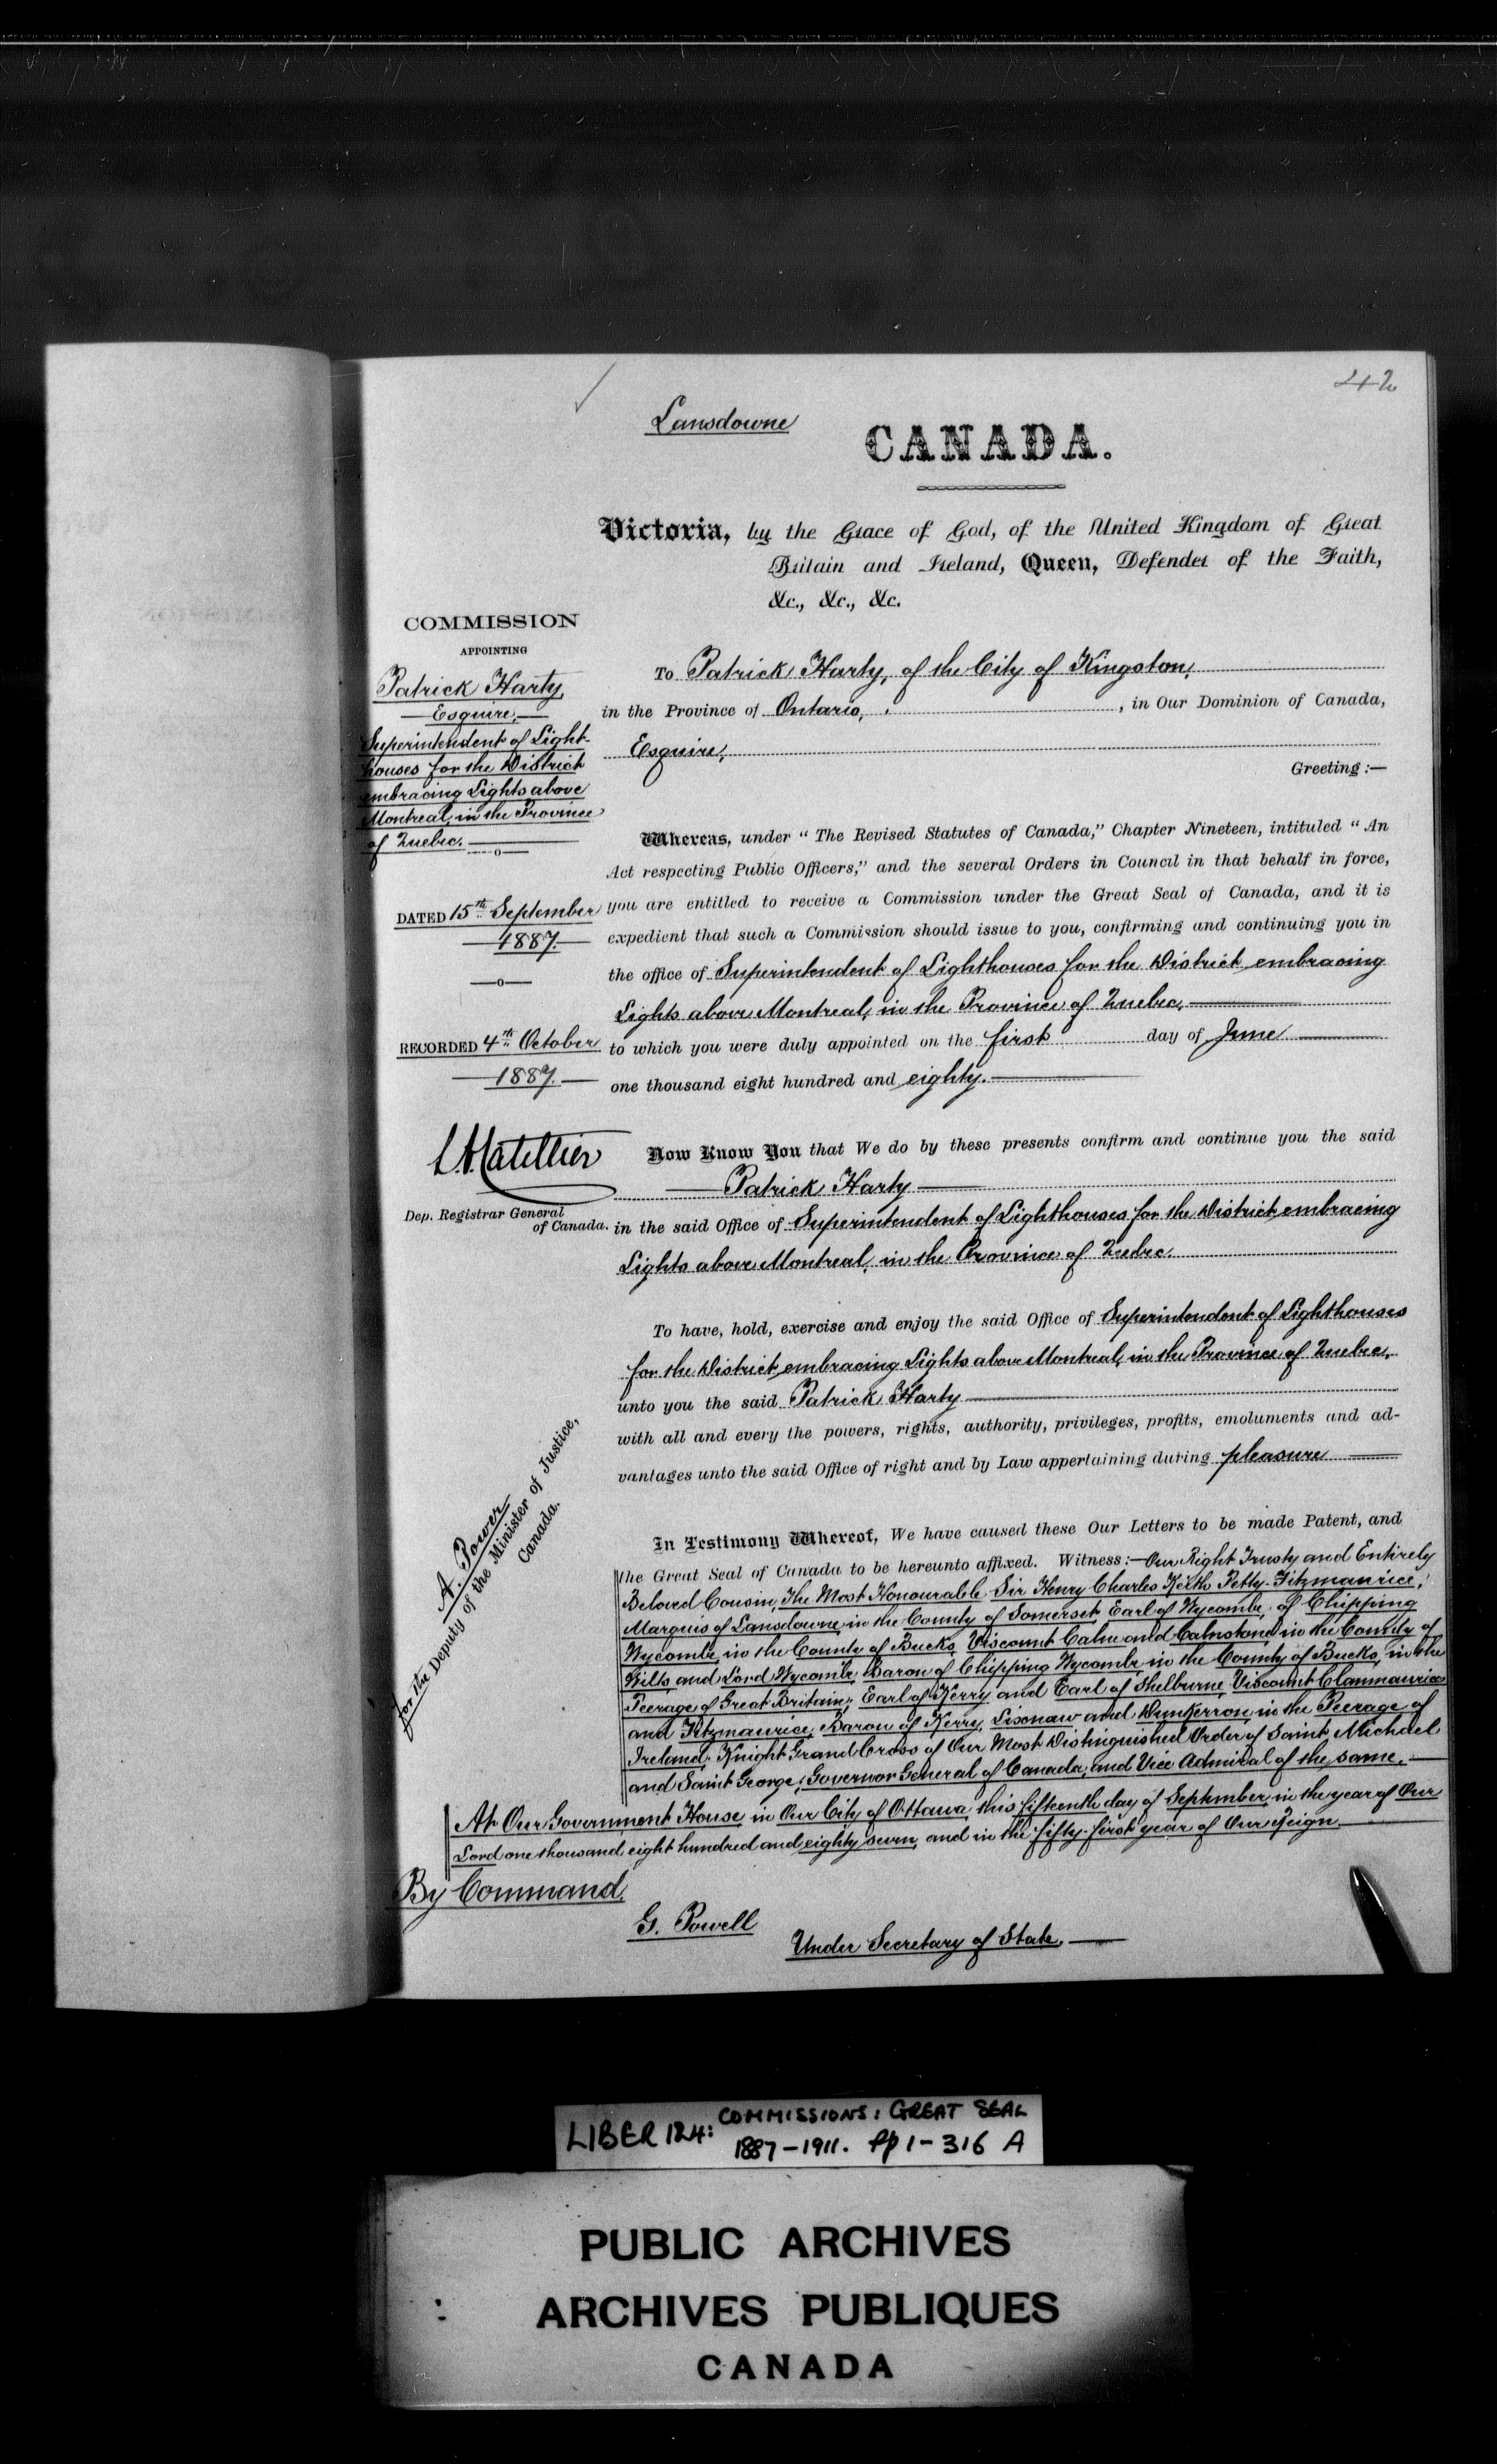 42
Lansdowne
CANADA.
Victoria, by the Grace of God, of the United Kingdom of Great
Britain and Ireland, Queen, Defender of the Faith,
&c., &c., &c.
COMMISSION
APPOINTING
Patrick Harty,
Esquire,
Superintendent of Light-
houses for the District
embracing Lights above
Montreal, in the Province
of Quebec.
DATED 15th September
1887.
RECORDED 4th October
1887.
Dep. Registrar General
of Canada.
A. Power
for the Deputy of the Minister of Justice,
Canada.
To Patrick Harty, of the City of Kingston,
in the Province of Ontario, , in Our Dominion of Canada,
Esquire,
Greeting:—
Whereas, under "The Revised Statutes of Canada," Chapter Nineteen, intituled "An
Act respecting Public Officers," and the several Orders in Council in that behalf in force,
you are entitled to receive a Commission under the Great Seal of Canada, and it is
expedient that such a Commission should issue to you, confirming and continuing you in
the office of Superintendent of Lighthouses for the District embracing
Lights above Montreal, in the Province of Quebec,
to which you were duly appointed on the first day of June
one thousand eight hundred and eighty.
Now Know You that We do by these presents confirm and continue you the said
Patrick Harty
in the said Office of Superintendent of Lighthouses for the District embracing
Lights above Montreal, in the Province of Quebec.
To have, hold, exercise and enjoy the said Office of Superintendent of Lighthouses
for the District embracing Lights above Montreal, in the Province of Quebec,
unto you the said Patrick Harty
with all and every the powers, rights, authority, privileges, profits, emoluments and ad-
vantages unto the said Office of right and by Law appertaining during pleasure
In Testimony Whereof, We have caused these Our Letters to be made Patent, and
the Great Seal of Canada to be hereunto affixed. Witness:—Our Right Trusty and Entirely
Beloved Cousin, The Most Honourable Sir Henry Charles Keith Petty-Fitzmaurice,
Marquis of Lansdowne, in the County of Somerset, Earl of Wycombe, of Chipping
Wycombe, in the County of Bucks, Viscount Calne and Calnstone, in the County of
Wilts, and Lord Wycombe, Baron of Chipping Wycombe, in the County of Bucks, in the
Peerage of Great Britain; Earl of Kerry and Earl of Shelburne, Viscount Clanmaurice
and Fitzmaurice, Baron of Kerry, Lixnaw and Dunkerron, in the Peerage of
Ireland; Knight Grand Cross of Our Most Distinguished Order of Saint Michael
and Saint George; Governor General of Canada, and Vice Admiral of the same.
At Our Government House in Our City of Ottawa, this fifteenth day of September, in the year of Our
Lord one thousand eight hundred and eighty seven, and in the fifty-first year of Our Reign
By Command,
G. Powell
Under Secretary of State,
LIBER 124: COMMISSIONS: GREAT SEAL
1887-1911. pp 1-316 A
PUBLIC ARCHIVES
ARCHIVES PUBLIQUES
CANADA